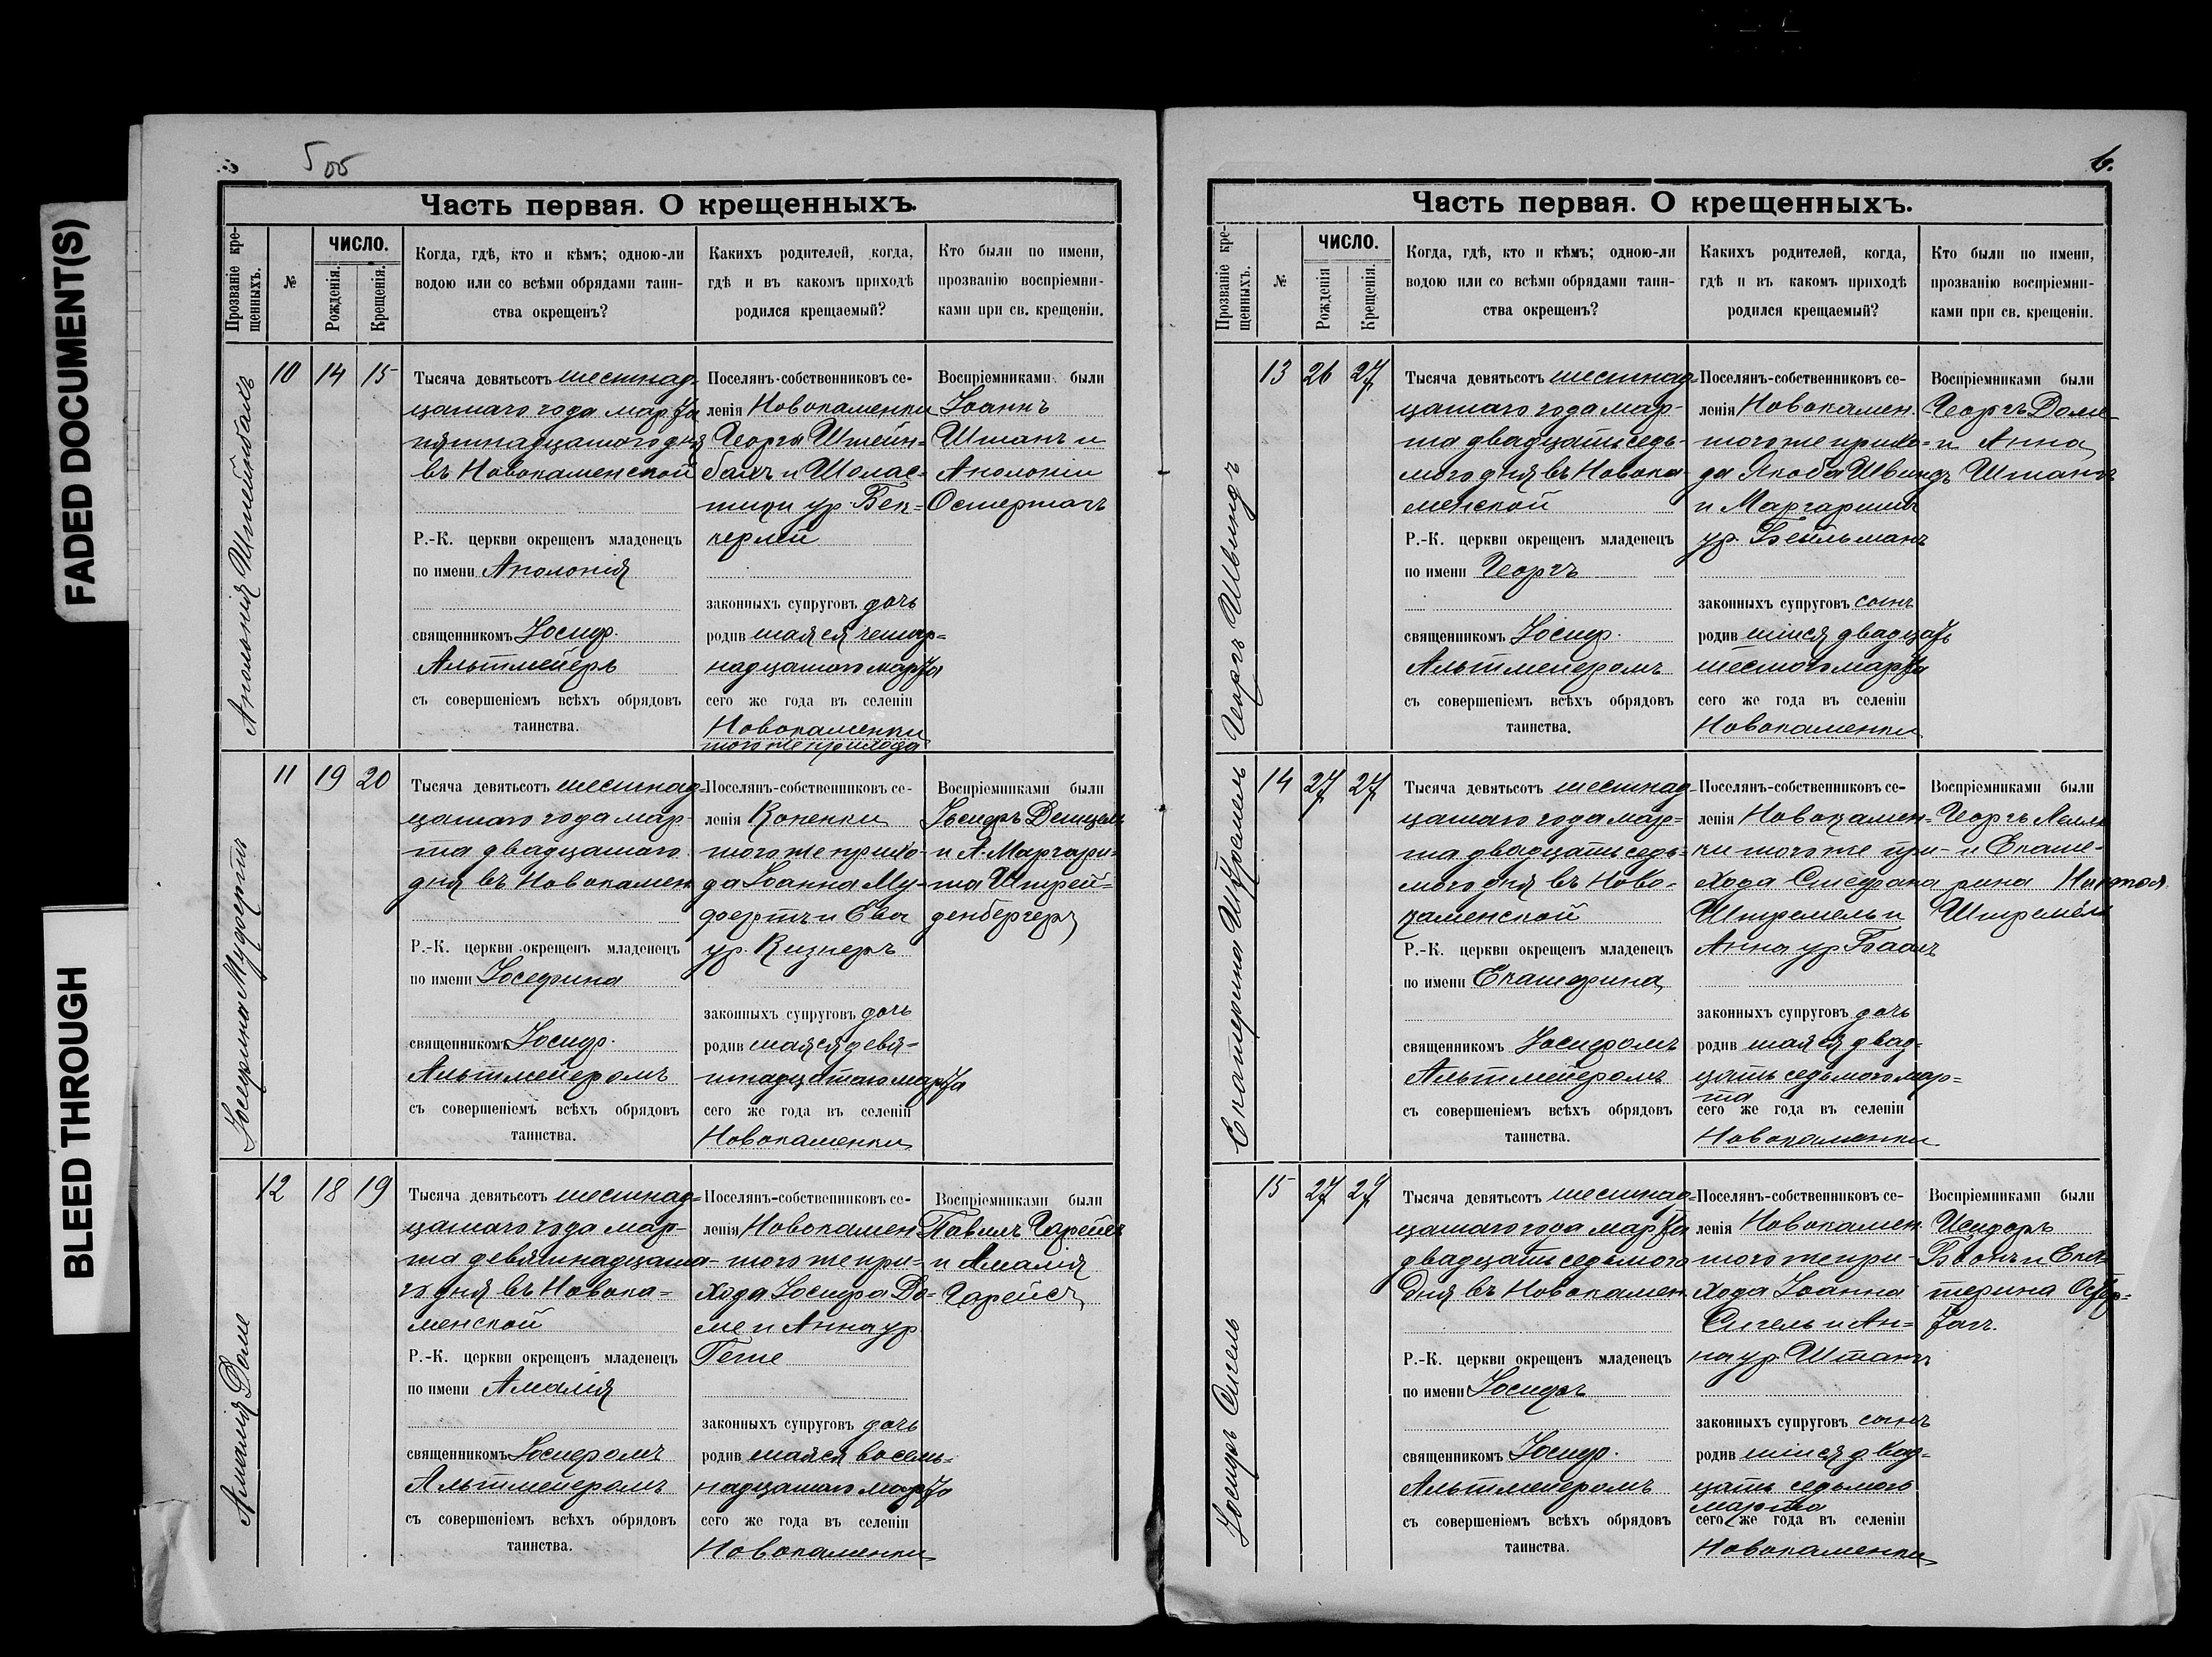 FADED DOCUMENT(S)
BLEED THROUGH
5
Часть первая. О крещенныхъ.
Прозваніе кре-
щенныхъ.
№
ЧИСЛО.
Рожденія.
Крещенія.
Когда, гдѣ, кто и кѣмъ; одною-ли
водою или со всѣми обрядами таин-
ства окрещенъ?
Какихъ родителей, когда,
гдѣ и въ какомъ приходѣ
родился крещаемый?
Кто были по имени,
прозванію воспріемни-
ками при св. крещеніи.
Аполонія Штейнбахъ
10 14 15
Тысяча девятьсотъ шестнад-
цатаго года марта
пятнадцатаго дня
въ Новокаменской
Р.-К. церкви окрещенъ младенецъ
по имени Аполонія
священникомъ Іосиф.
Альтмейеръ
съ совершеніемъ всѣхъ обрядовъ
таинства.
Поселянъ-собственниковъ се-
ленія Новокаменки
Георгія Штейн-
бахъ и Шолас-
тики ур. Бек-
керлей
законныхъ супруговъ дочь
родив шаяся четыр-
надцатаго марта
сего же года въ селеніи
Новокаменки
того же прихода
Воспріемниками были
Іоаннъ
Штангъ и
Аполонія
Остертагъ
Іосефина Муфертъ
11 19 20
Тысяча девятьсотъ шестнад-
цатаго года мар-
та двадцатаго
дня въ Новокамен
Р.-К. церкви окрещенъ младенецъ
по имени Іосефина
священникомъ Іосиф.
Альтмейеромъ
съ совершеніемъ всѣхъ обрядовъ
таинства.
Поселянъ-собственниковъ се-
ленія Копенки
того же прихо-
да Іоанна Му-
фертъ и Ева
ур. Кизнеръ
законныхъ супруговъ дочь
родив шаяся девя-
тнадцатаго марта
сего же года въ селеніи
Новокаменки
Воспріемниками были
Іосифъ
и А. Маргари-
та Штрей-
денбергеръ
Амалія Доме
12 18 19
Тысяча девятьсотъ шестнад-
цатаго года мар-
та девятнадцата-
го дня въ Новока-
менской
Р.-К. церкви окрещенъ младенецъ
по имени Амалія
священникомъ Іосифомъ
Альтмейеромъ
съ совершеніемъ всѣхъ обрядовъ
таинства.
Поселянъ-собственниковъ се-
ленія Новокамен
того же при-
хода Іосифа До-
ме и Анна ур
законныхъ супруговъ дочь
родив шаяся восем-
надцатаго марта
сего же года въ селеніи
Новокаменки
Воспріемниками были
Павелъ Гарейсъ
и Амалія
Гарейсъ
6.
Часть первая. О крещенныхъ.
Прозваніе кре-
щенныхъ.
№
ЧИСЛО.
Рожденія
Крещенія.
Когда, гдѣ, кто и кѣмъ; одною-ли
водою или со всѣми обрядами таин-
ства окрещенъ?
Какихъ родителей, когда,
гдѣ и въ какомъ приходѣ
родился крещаемый?
Кто были по имени,
прозванію воспріемни-
ками при св. крещеніи.
Георгъ Швиндъ
13 26 27
Тысяча девятьсотъ шестнад-
цатаго года мар-
та двадцать седь-
мого дня въ Новока-
менской
Р.-К. церкви окрещенъ младенецъ
по имени Георгъ
священникомъ Іосиф.
Альтмейеромъ
съ совершеніемъ всѣхъ обрядовъ
таинства.
Поселянъ-собственниковъ се-
ленія Новокамен.
того же прихо-
да Якоба Швиндъ
и Маргарита
ур. Бейльманъ
законныхъ супруговъ сынъ
родив шійся двадцать
шестого марта
сего же года въ селеніи
Новокаменки
Воспріемниками были
Георгъ Доме
и Анна
Штангъ
Екатерина Штремель
14 27 27
Тысяча девятьсотъ шестнад-
цатаго года мар-
та двадцать седь-
мого дня въ Ново-
каменской
Р.-К. церкви окрещенъ младенецъ
по имени Екатерина
священникомъ Іосифомъ
Альтмейеромъ
съ совершеніемъ всѣхъ обрядовъ
таинства.
Поселянъ-собственниковъ се-
ленія Новокамен-
ки того же при-
хода Стефана
Штремель и
Анна ур Баалъ
законныхъ супруговъ дочь
родив шаяся двад-
цать седьмого мар-
та
сего же года въ селеніи
Новокаменки
Воспріемниками были
Георгъ
и Екате-
рина
Штремель
Іосифъ Сигель
15 27 27
Тысяча девятьсотъ шестнад-
цатаго года марта
двадцать седьмого
дня въ Новокамен.
Р.-К. церкви окрещенъ младенецъ
по имени Іосифъ
священникомъ Іосиф.
Альтмейеромъ
съ совершеніемъ всѣхъ обрядовъ
таинства.
Поселянъ-собственниковъ се-
ленія Новокамен.
того же при-
хода Іоанна
Сигель и Ан-
на ур Штангъ
законныхъ супруговъ сынъ
родив шійся двад-
цать седьмого
марта
сего же года въ селеніи
Новокаменки
Воспріемниками были
Исидоръ
и Ека-
терина Остер-
тагъ.